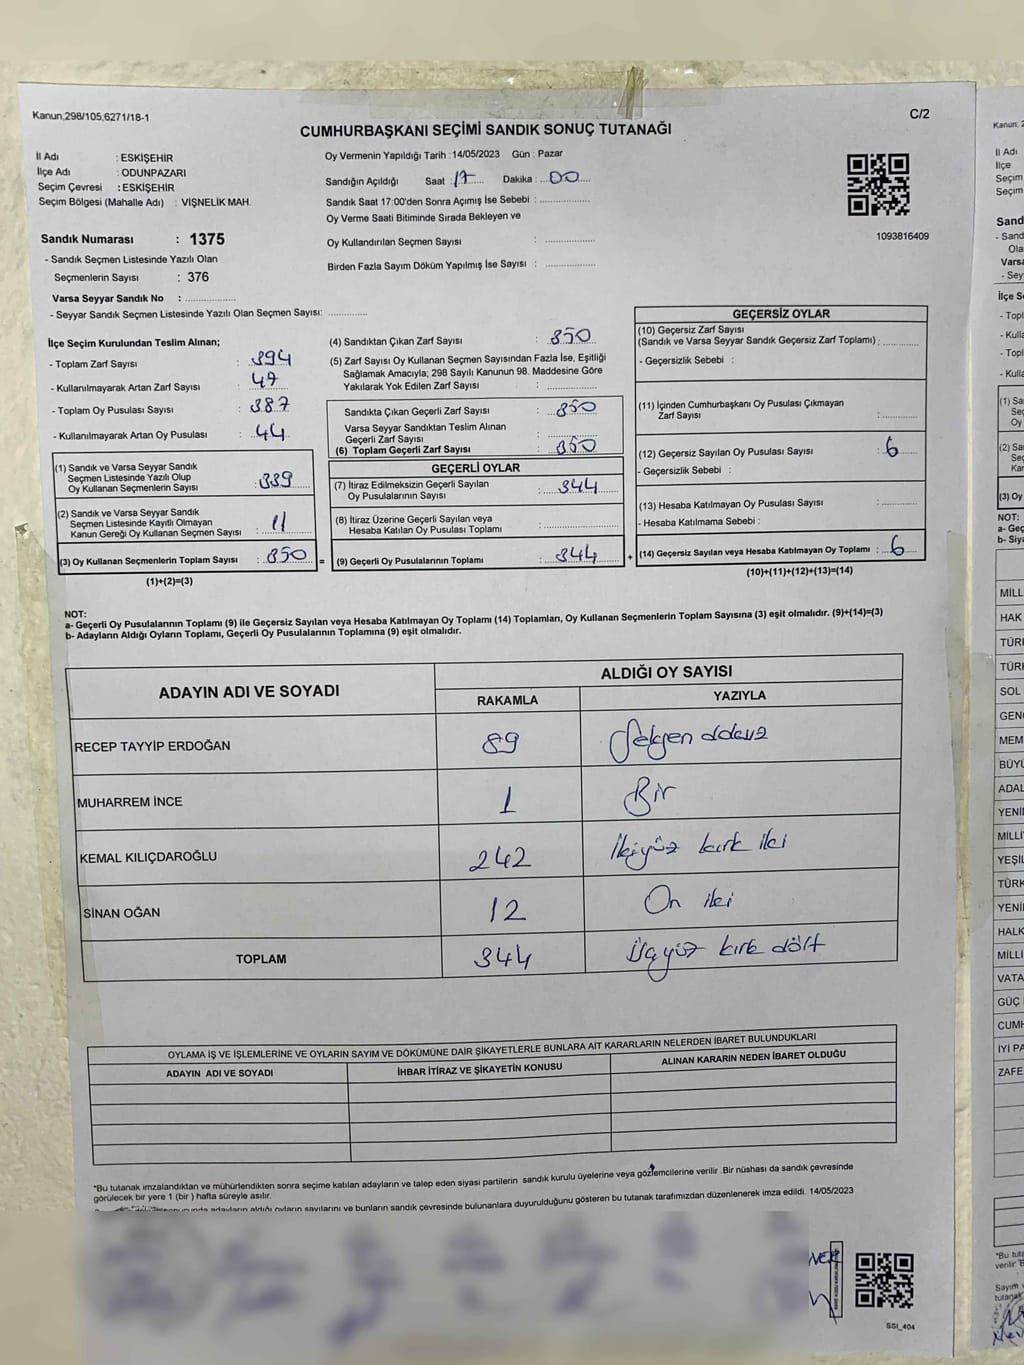 Kanun;298/105,6271/18-1
C/2
CUMHURBAŞKANI SEÇİMİ SANDIK SONUÇ TUTANAĞI
İl Adı : ESKİŞEHİR
İlçe Adı : ODUNPAZARI
Seçim Çevresi : ESKİŞEHİR
Seçim Bölgesi (Mahalle Adı) : VİŞNELİK MAH.
Sandık Numarası : 1375
- Sandık Seçmen Listesinde Yazılı Olan
Seçmenlerin Sayısı : 376
Varsa Seyyar Sandık No : ................
- Seyyar Sandık Seçmen Listesinde Yazılı Olan Seçmen Sayısı: ............
Oy Vermenin Yapıldığı Tarih : 14/05/2023 Gün : Pazar
Sandığın Açıldığı Saat : 17 Dakika : 00
Sandık Saat 17:00'den Sonra Açımış İse Sebebi : ................
Oy Verme Saati Bitiminde Sırada Bekleyen ve
Oy Kullandırılan Seçmen Sayısı : ................
Birden Fazla Sayım Döküm Yapılmış İse Sayısı : ................
1093816409
İlçe Seçim Kurulundan Teslim Alınan;
- Toplam Zarf Sayısı : 394
- Kullanılmayarak Artan Zarf Sayısı : 47
- Toplam Oy Pusulası Sayısı : 387
- Kullanılmayarak Artan Oy Pusulası : 44
(1) Sandık ve Varsa Seyyar Sandık
Seçmen Listesinde Yazılı Olup
Oy Kullanan Seçmenlerin Sayısı : 339
(2) Sandık ve Varsa Seyyar Sandık
Seçmen Listesinde Kayıtlı Olmayan
Kanun Gereği Oy Kullanan Seçmen Sayısı : 11
(3) Oy Kullanan Seçmenlerin Toplam Sayısı : 350 =
(1)+(2)=(3)
(4) Sandıktan Çıkan Zarf Sayısı : 350
(5) Zarf Sayısı Oy Kullanan Seçmen Sayısından Fazla İse, Eşitliği
Sağlamak Amacıyla; 298 Sayılı Kanunun 98. Maddesine Göre
Yakılarak Yok Edilen Zarf Sayısı : ................
Sandıkta Çıkan Geçerli Zarf Sayısı : 350
Varsa Seyyar Sandıktan Teslim Alınan
Geçerli Zarf Sayısı : ................
(6) Toplam Geçerli Zarf Sayısı : 350
GEÇERLİ OYLAR
(7) İtiraz Edilmeksizin Geçerli Sayılan
Oy Pusulalarının Sayısı : 344
(8) İtiraz Üzerine Geçerli Sayılan veya
Hesaba Katılan Oy Pusulası Toplamı : ................
(9) Geçerli Oy Pusulalarının Toplamı : 344 +
GEÇERSİZ OYLAR
(10) Geçersiz Zarf Sayısı
(Sandık ve Varsa Seyyar Sandık Geçersiz Zarf Toplamı) : ............
- Geçersizlik Sebebi :
(11) İçinden Cumhurbaşkanı Oy Pusulası Çıkmayan
Zarf Sayısı : ............
(12) Geçersiz Sayılan Oy Pusulası Sayısı : 6
- Geçersizlik Sebebi :
(13) Hesaba Katılmayan Oy Pusulası Sayısı : ............
- Hesaba Katılmama Sebebi :
(14) Geçersiz Sayılan veya Hesaba Katılmayan Oy Toplamı : 6
(10)+(11)+(12)+(13)=(14)
NOT:
a- Geçerli Oy Pusulalarının Toplamı (9) ile Geçersiz Sayılan veya Hesaba Katılmayan Oy Toplamı (14) Toplamları, Oy Kullanan Seçmenlerin Toplam Sayısına (3) eşit olmalıdır. (9)+(14)=(3)
b- Adayların Aldığı Oyların Toplamı, Geçerli Oy Pusulalarının Toplamına (9) eşit olmalıdır.
ADAYIN ADI VE SOYADI ALDIĞI OY SAYISI
RAKAMLA YAZIYLA
RECEP TAYYİP ERDOĞAN 89 Seksen dokuz
MUHARREM İNCE 1 Bir
KEMAL KILIÇDAROĞLU 242 İkiyüz kırk iki
SİNAN OĞAN 12 On iki
TOPLAM 344 Üçyüz kırk dört
OYLAMA İŞ VE İŞLEMLERİNE VE OYLARIN SAYIM VE DÖKÜMÜNE DAİR ŞİKAYETLERLE BUNLARA AİT KARARLARIN NELERDEN İBARET BULUNDUKLARI
ADAYIN ADI VE SOYADI İHBAR İTİRAZ VE ŞİKAYETİN KONUSU ALINAN KARARIN NEDEN İBARET OLDUĞU
*Bu tutanak imzalandıktan ve mühürlendikten sonra seçime katılan adayların ve talep eden siyasi partilerin sandık kurulu üyelerine veya gözlemcilerine verilir .Bir nüshası da sandık çevresinde
görülecek bir yere 1 (bir ) hafta süreyle asılır.
adayların aldığı oyların sayılarını ve bunların sandık çevresinde bulunanlara duyurulduğunu gösteren bu tutanak tarafımızdan düzenlenerek imza edildi. 14/05/2023
SSI_404
Kanun: 2
İl Adı
İlçe
Seçim
Seçim
Sand
- Sand
Ola
Varsa
- Sey
İlçe Se
- Topl
- Kulla
- Topl
- Kulla
(1) Sa
Seç
Oy
(2) Sa
Seç
Kan
(3) Oy
NOT:
a- Geç
b- Siya
MİLL
HAK
TÜRK
TÜRK
SOL
GENÇ
MEM
BÜYÜ
ADAL
YENİ
MİLLİ
YEŞİL
TÜRK
YENİ
HALK
MİLLİ
VATA
GÜÇ
CUMH
İYİ PA
ZAFE
*Bu tuta
verilir B
Sayım v
tutanak